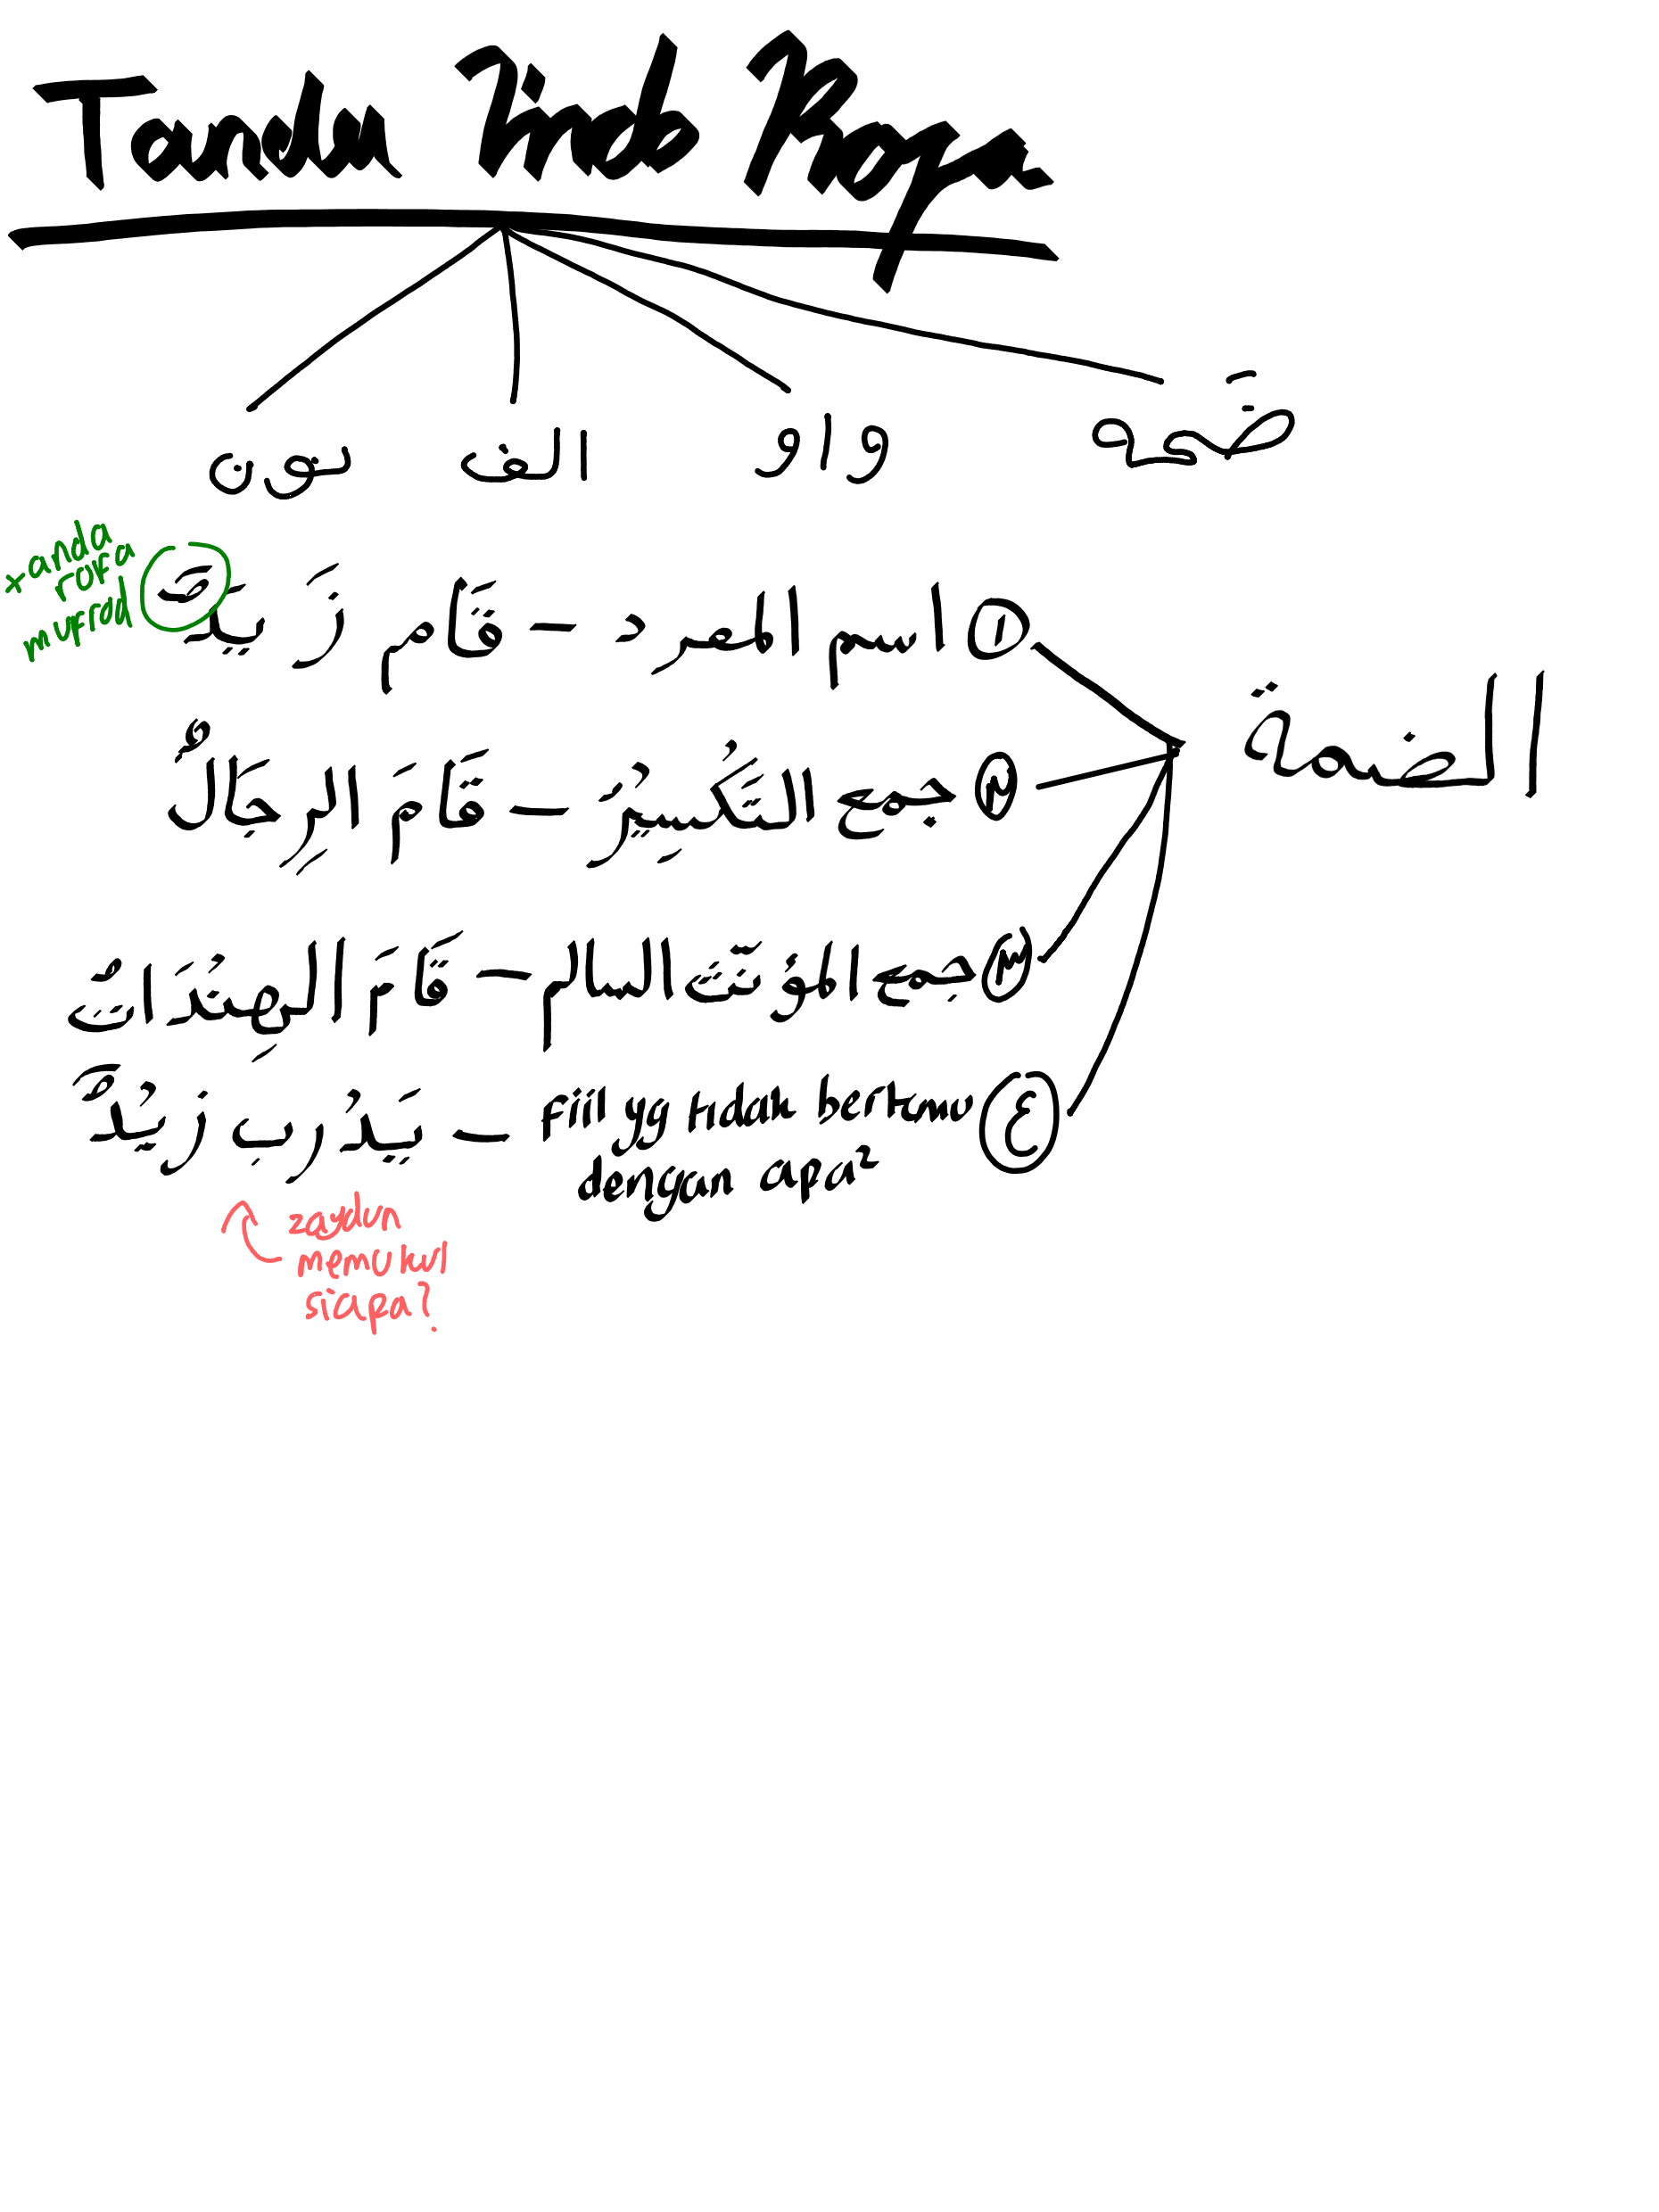 Tanda Irob Rofa
ضَمه واو الف نون
الضمة
١ اسم المفرد - قَام زَيدٌ
tanda rofa mufrod
٢ جمَع التَكُسِيُر - قَامَ الرِجَالٌ
٣ جمع المؤنث السالم - قَامَ الهِنْدَاتُ
٤ fiil yg tidak bertemu - يَدْرِب زَيْدٌ
dengan apa²
zaydun
memukul
siapa?